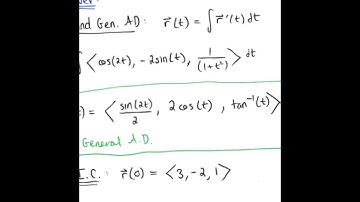 ind Gen. AD: r⃗(t) = ∫ r⃗'(t) dt
∫ ⟨cos(2t), -2sin(t), 1/(1+t²)⟩ dt
) = ⟨sin(2t)/2, 2cos(t), tan⁻¹(t)⟩
General A.D.
I.C.: r⃗(0) = ⟨3, -2, 1⟩